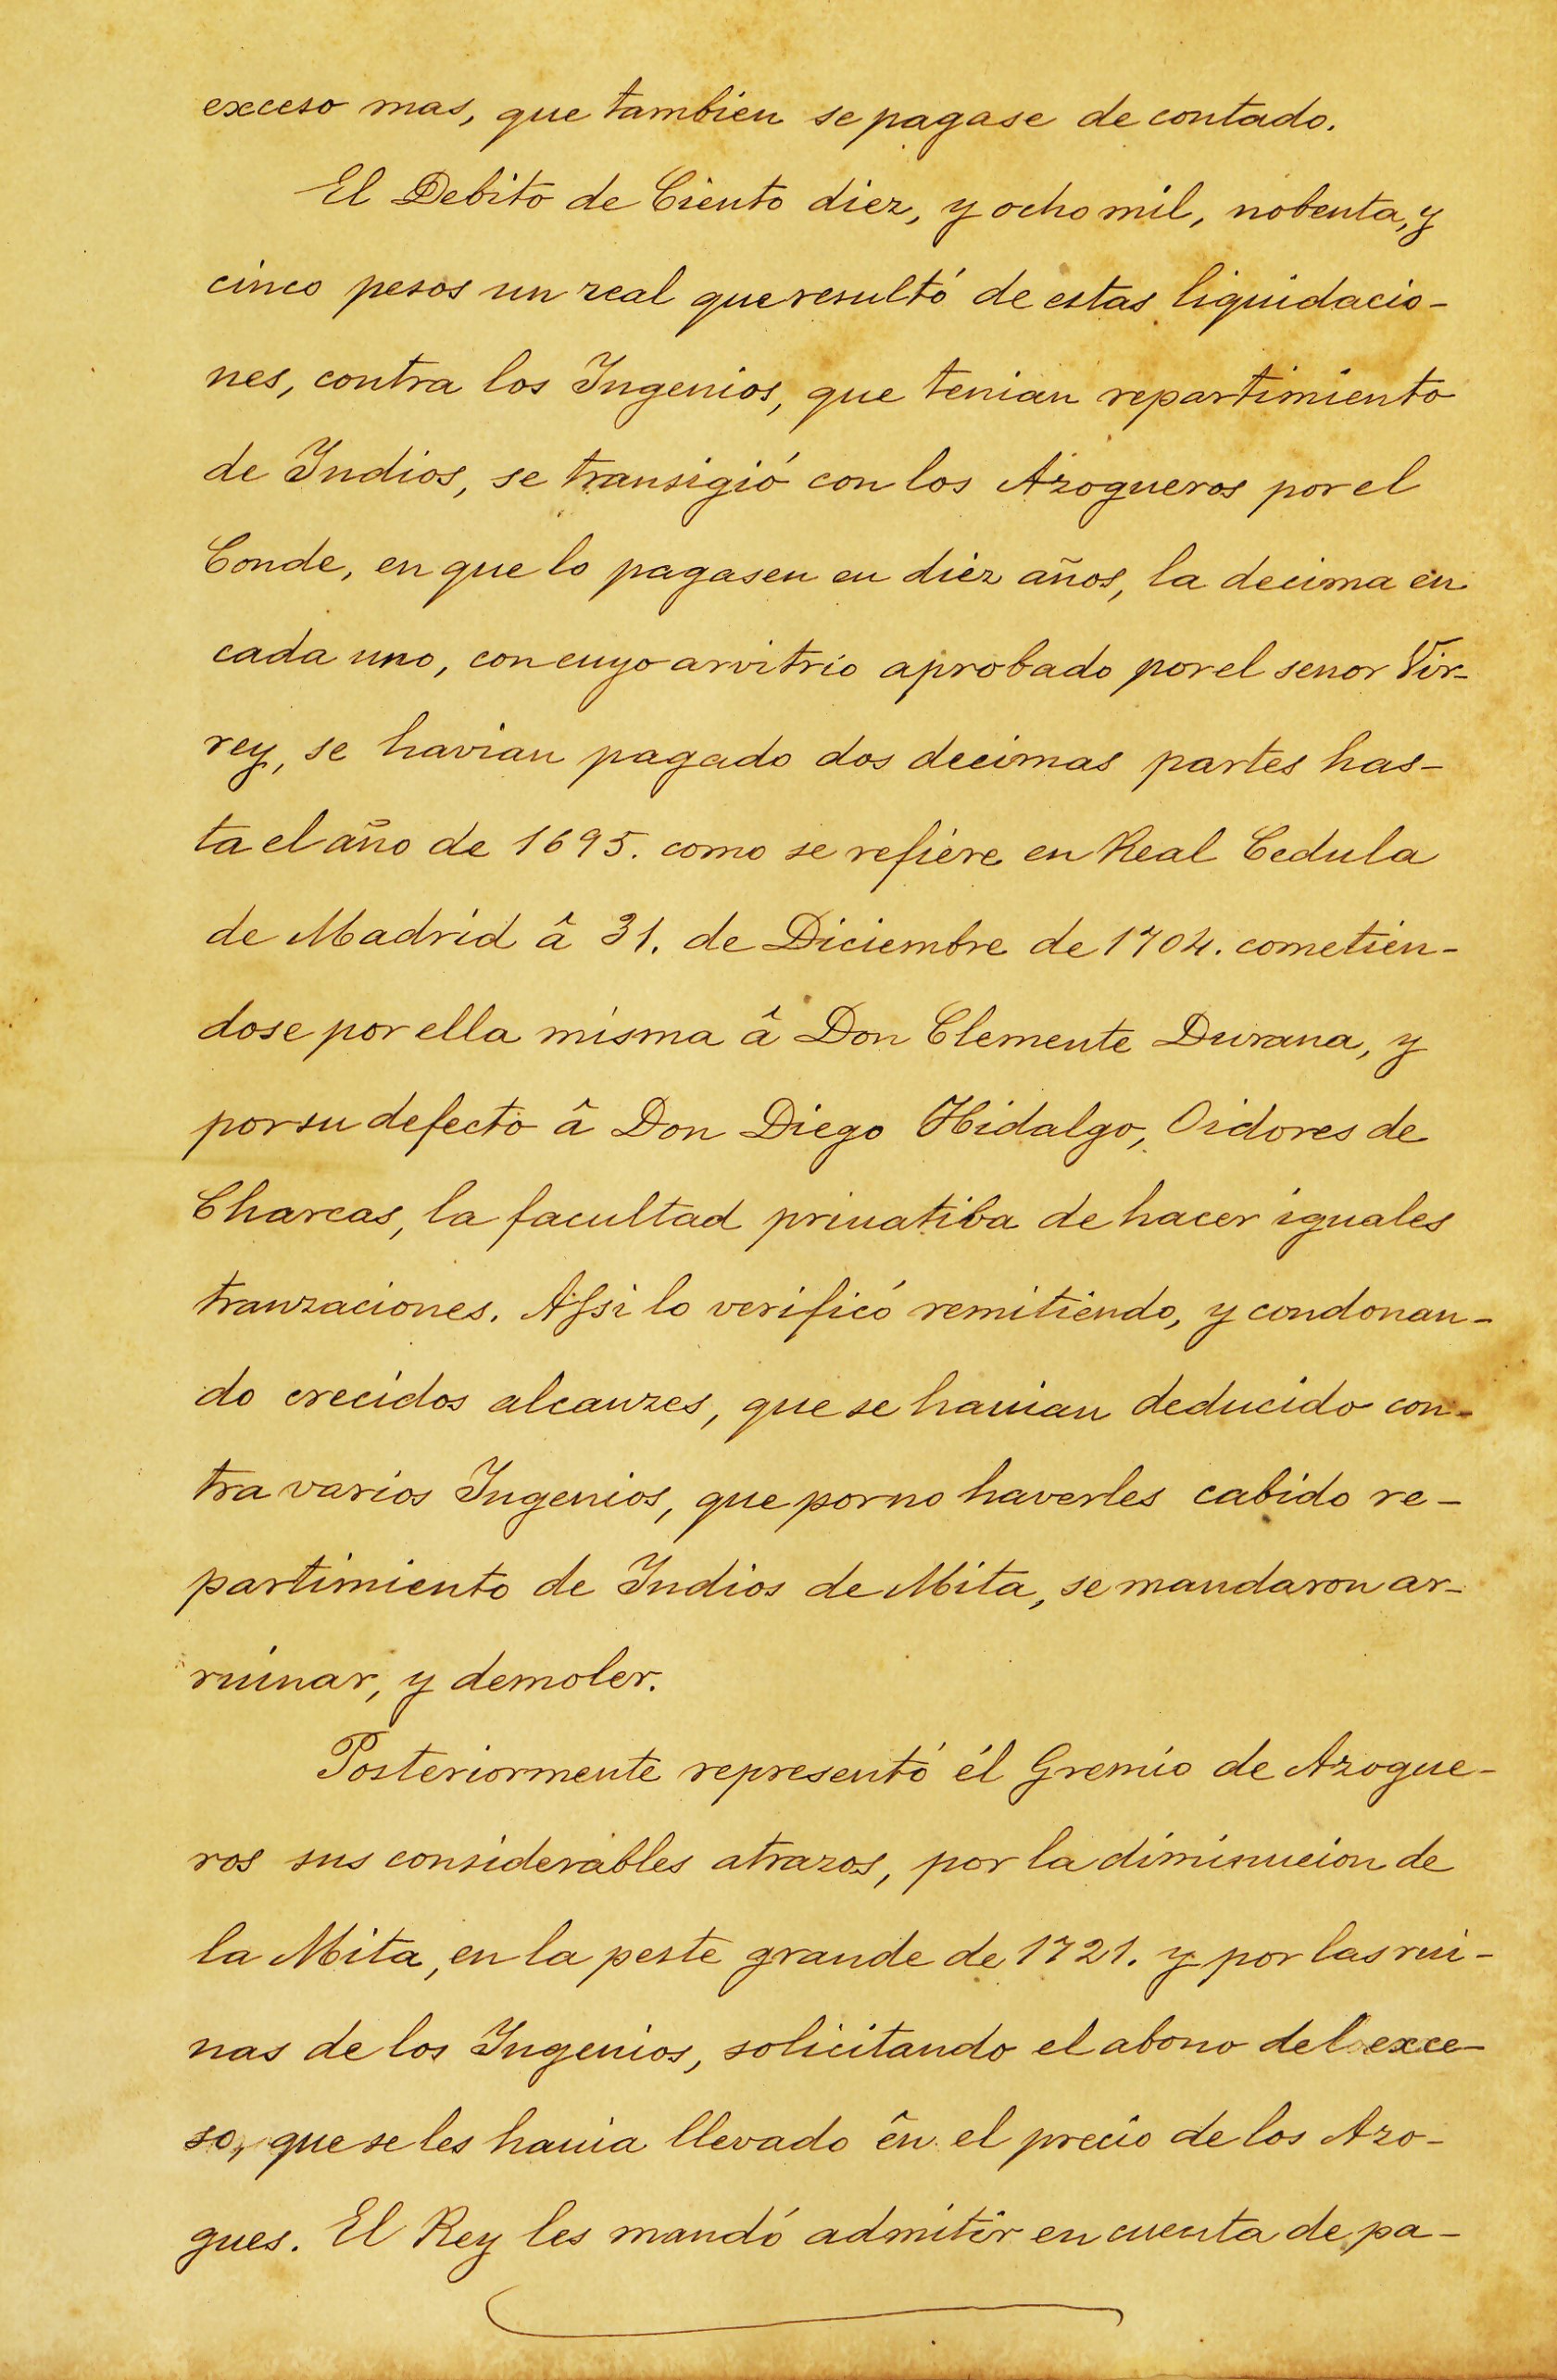 exceso mas, que tambien se pagase de contado.
El Debito de Ciento diez, y ocho mil, nobenta, y
cinco pesos un real que resultó de estas liquidacio-
nes, contra los Ingenios, que tenian repartimiento
de Indios, se transigió con los Azogueros por el
Conde, en que lo pagasen en diez años, la decima en
cada uno, con cuyo arvitrio aprobado por el senor Vir-
rey, se havian pagado dos decimas partes has-
ta el año de 1695. como se refiere en Real Cedula
de Madrid â 31. de Diciembre de 1704. cometien-
dose por ella misma â Don Clemente Durana, y
por su defecto â Don Diego Hidalgo, Oidores de
Charcas, la facultad priuatiba de hacer iguales
tranzaciones. Assi lo verificó remitiendo, y condonan-
do crecidos alcanzes, que se hauian deducido con-
tra varios Ingenios, que por no haverles cabido re-
partimiento de Indios de Mita, se mandaron ar-
ruinar, y demoler.
Posteriormente representó él Gremio de Azogue-
ros sus considerables atrazos, por la diminucion de
la Mita, en la peste grande de 1721. y por las rui-
nas de los Ingenios, solicitando el abono del exce-
so, que se les hauia llevado ên el precio de los Azo-
gues. El Rey les mandó admitir en cuenta de pa-